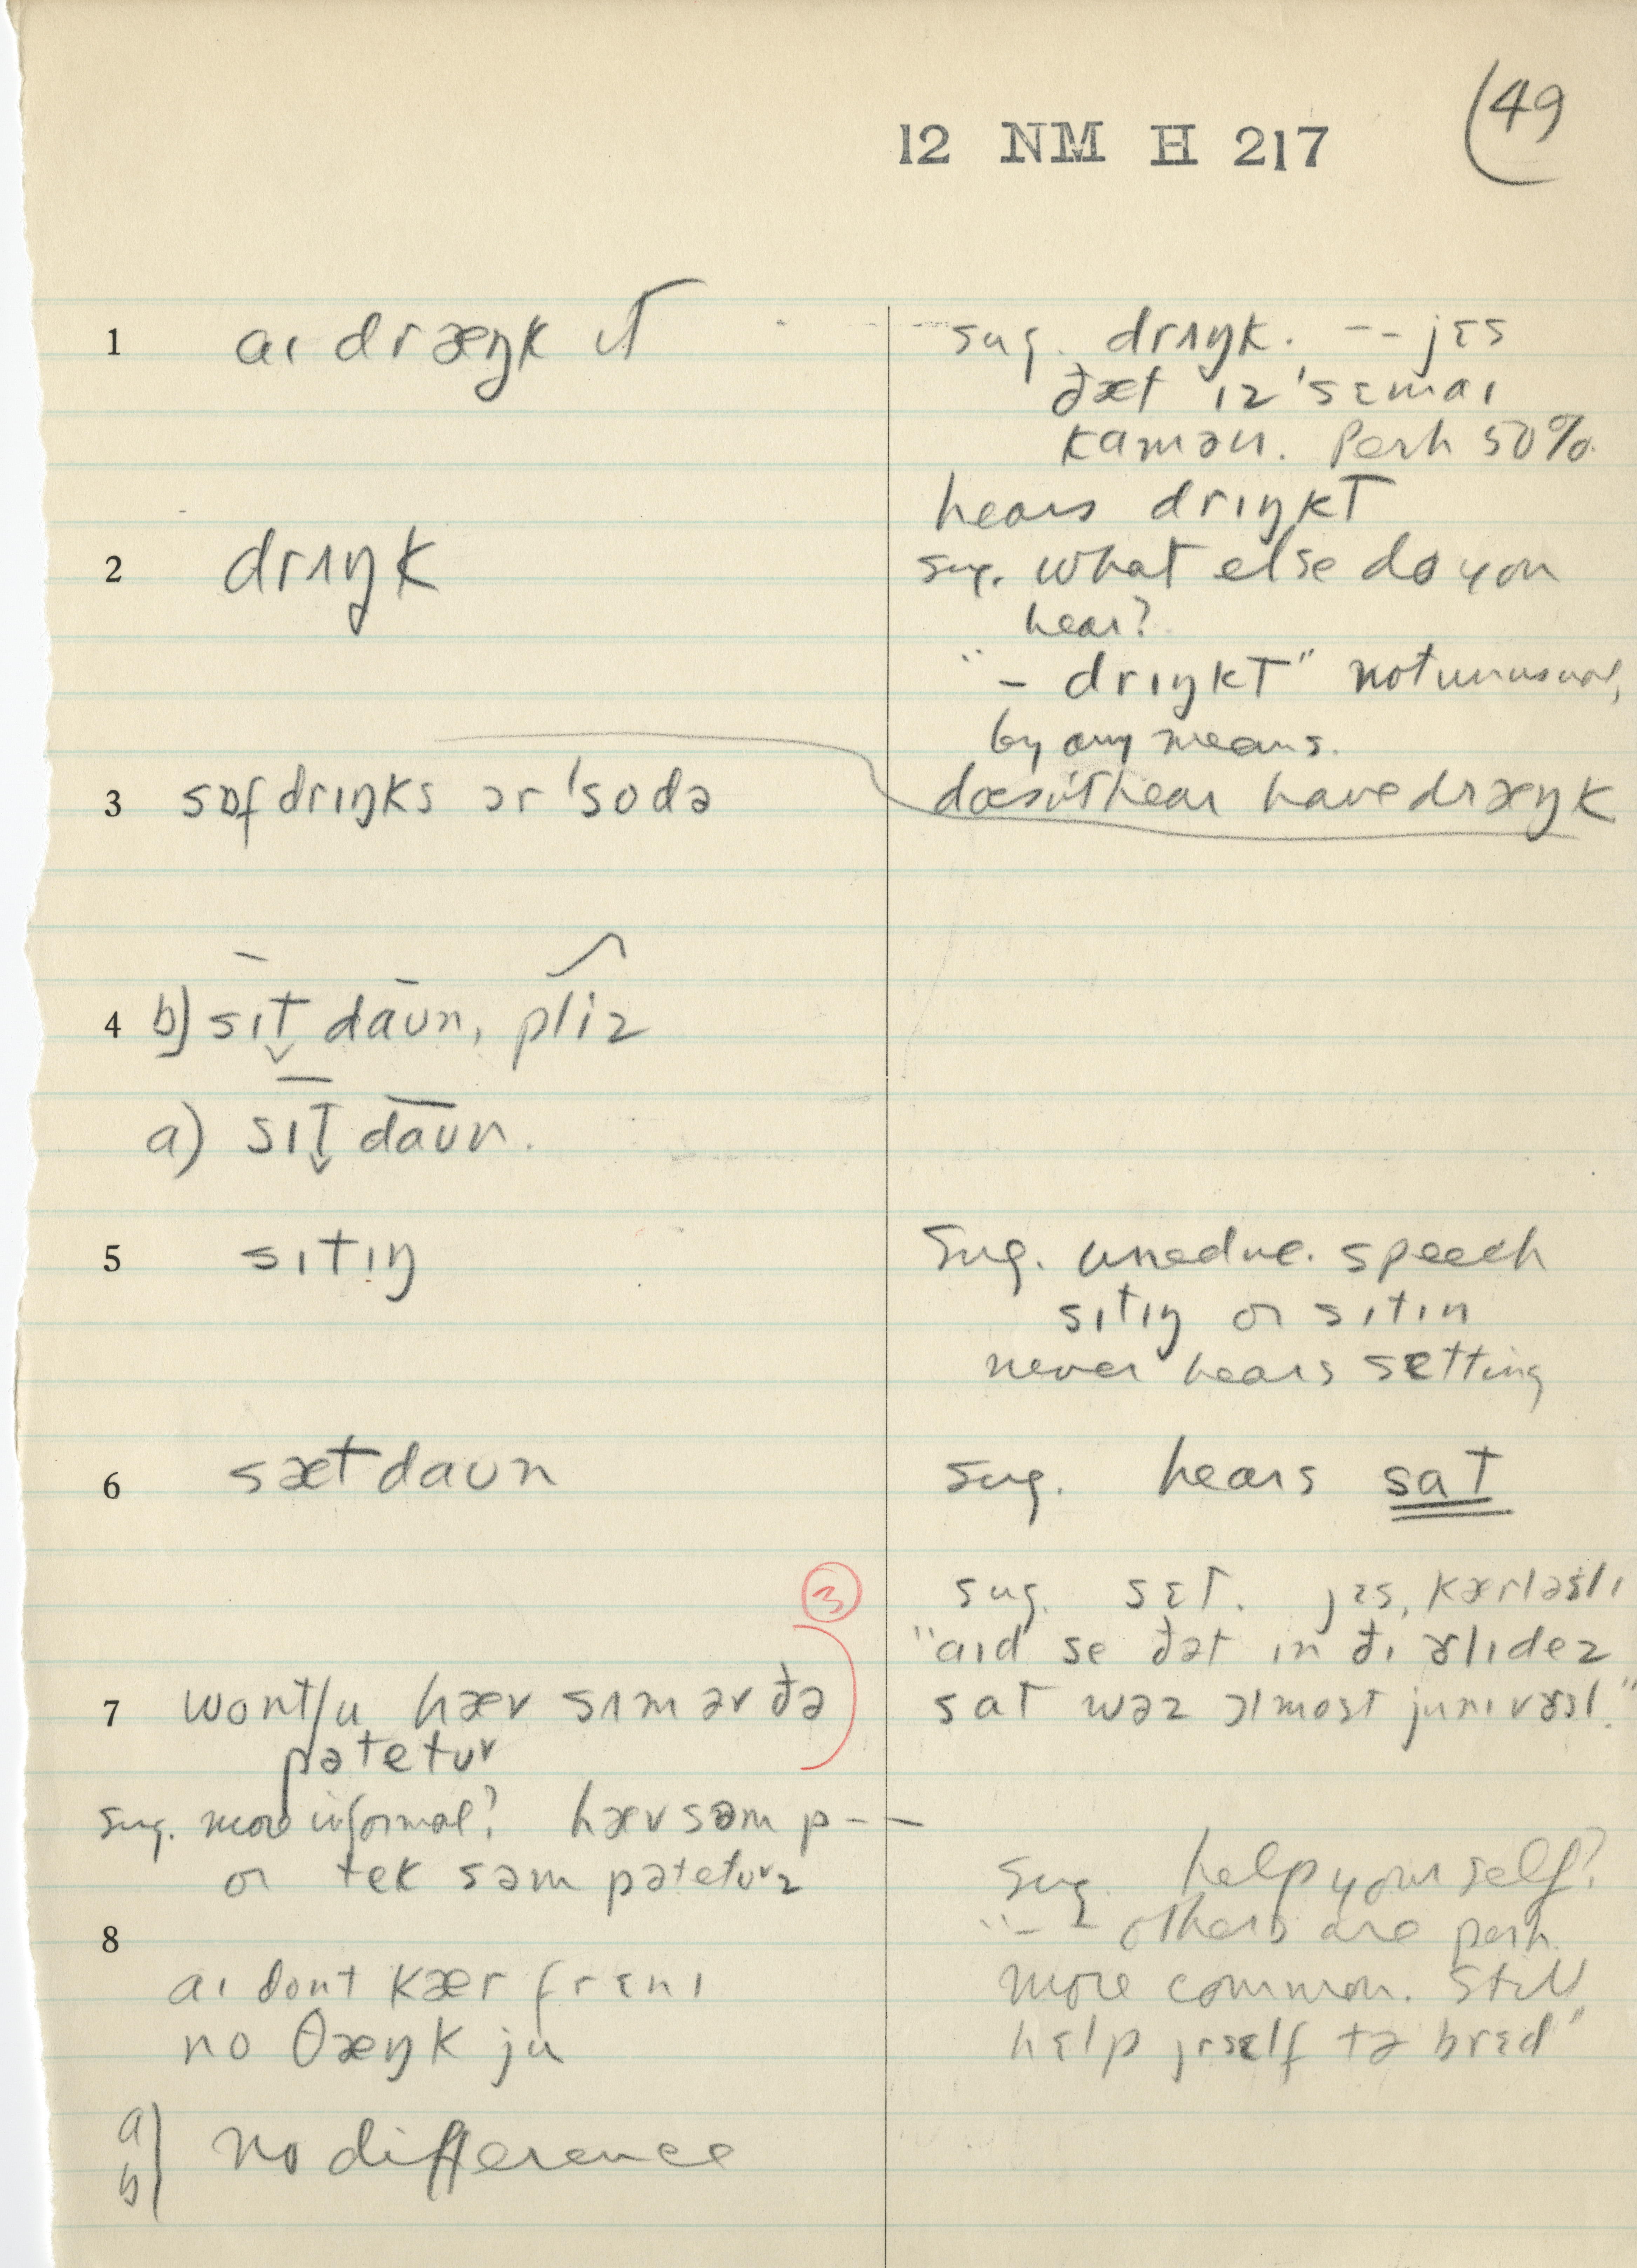 49
12 NM H 217
1 aɪ dræŋk ɪt
sug. drʌŋk. -- jɛs
ðæt ɪz 'sɛmaɪ
kamən. Perh 50%.
hears drɪŋkt
2 drʌŋk
sug. what else do you
hear?
"– drɪŋkt" not unusual,
by any means.
3 sɒfdrɪŋks ər 'sodə
doesn't hear have dræŋk
4 b) sɪt̬ daʊn, pliz
a) sɪt̬ daʊn.
5 sɪtɪŋ
Sug. uneduc. speech
sɪtɪŋ or sɪtɪn
never hears setting
6 sætdaʊn
sug. hears sat
③
sug. sɛt. jɛs, kærləsli
"aɪd se ðət ɪn ðɪ ɤlɪdez
7 wontʃu hæv sʌm əv ðə
sat wəz ɔlmost junɪvɝsl."
pətetʊr
sug. more informal? hæv səm p--
or tek səm pətetʊrz
sug. help yourself?
8
"-- others are perh.
aɪ dont kær fr ɛnɪ
more common. Still
no θæŋk ju
hɛlp jrsɛlf tə brɛd"
a)
b) no difference